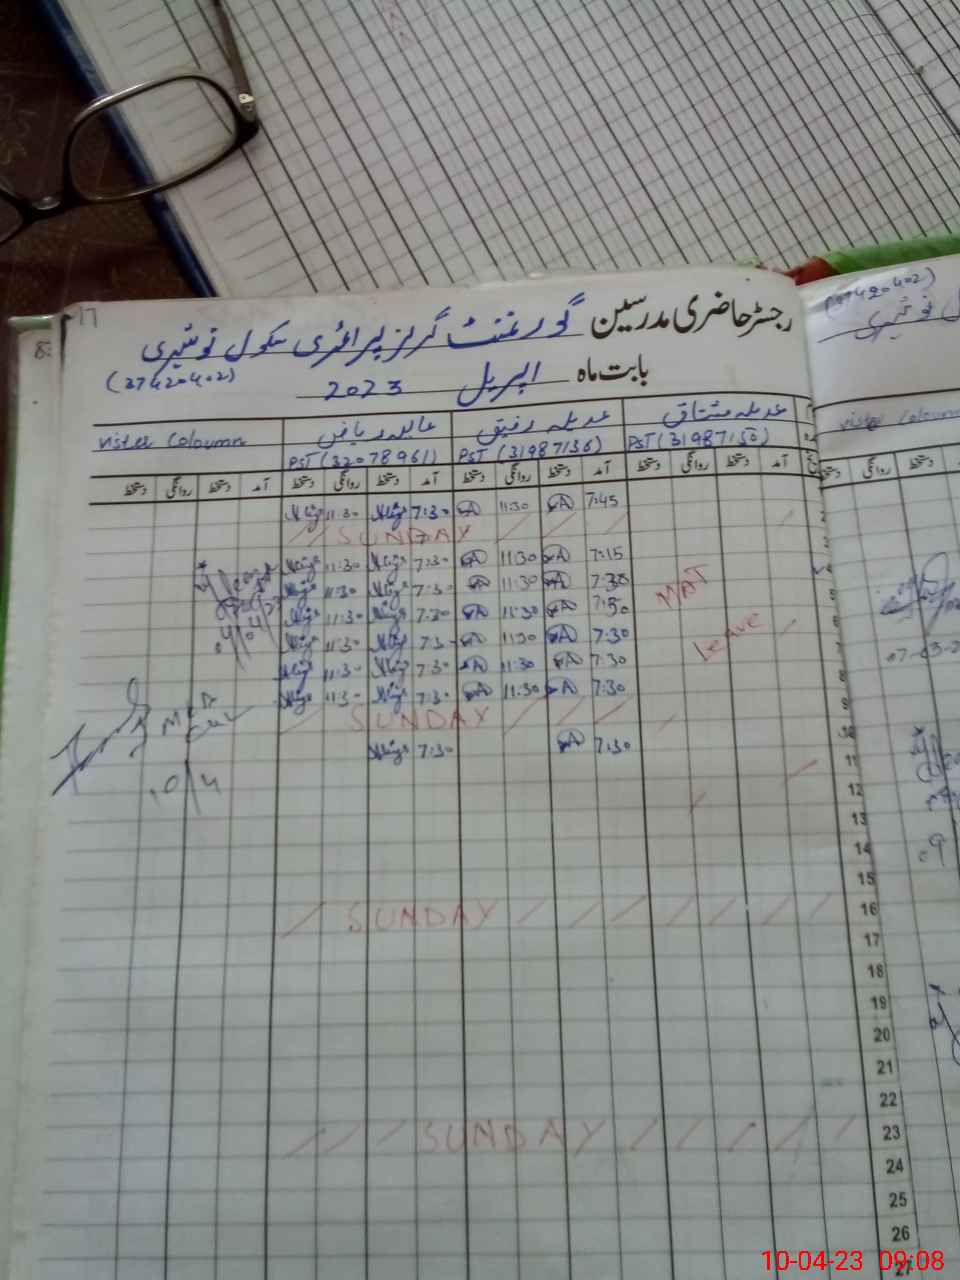 17
رجسٹر حاضری مدرسین گورنمنٹ گرلز پرائمری سکول نوشہری
(37420402)
بابت ماہ اپریل 2023
عدیلہ مشتاق عدیلہ رفیق عابدہ ریاض vister Coloumn
PST (31987150) PST (31987136) PST (32078961)
آمد دستخط روانگی دستخط آمد دستخط روانگی دستخط آمد دستخط روانگی دستخط آمد دستخط روانگی دستخط
7:45 11:30 7:30 11:30
SUNDAY
7:15 11:30 7:30 11:30
7:30 11:30 7:30 11:30
7:50 11:30 7:30 11:30
7:30 11:30 7:30 11:30
7:30 11:30 7:30 11:30
7:30 11:30 7:30 11:30
MAT
Leave
SUNDAY
7:30 7:30
SUNDAY
SUNDAY
2
3
4
5
6
7
8
9
10
11
12
13
14
15
16
17
18
19
20
21
22
23
24
25
26
27
(37420402)
vister Coloumn
روانگی دستخط
10-04-23 09:08